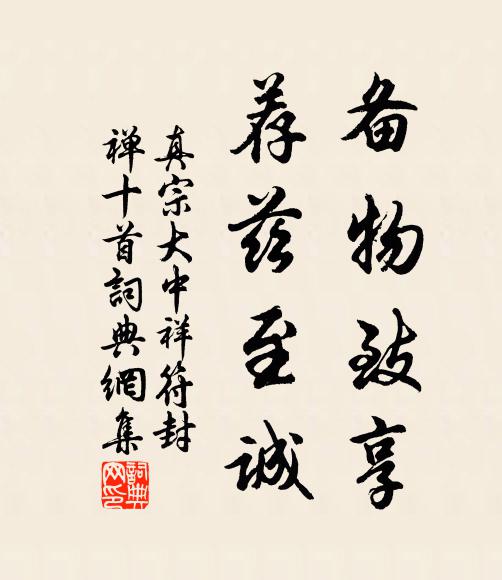 备物致享
荐兹至诚
真宗大中祥符封
禅十首詞典網集
詞典网印